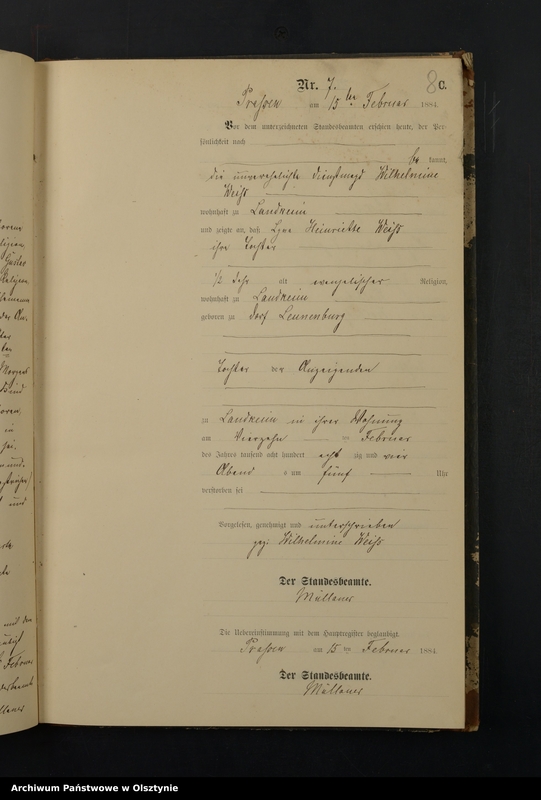 Nr. 7. 8 C.
Prassen am 15ten Februar 1884.
Vor dem unterzeichneten Standesbeamten erschien heute, der Per-
sönlichkeit nach
be kannt,
die unverehelichte Dienstmagd Wilhelmine
Weiß
wohnhaft zu Landkeim
und zeigte an, daß Heinriette Weiß
ihre Tochter
1/2 Jahr alt evangelischer Religion,
wohnhaft zu Landkeim
geboren zu Dorf Leunenburg
Tochter der Anzeigenden
zu Landkeim in ihrer Wohnung
am vierzehn ten Februar
des Jahres tausend acht hundert acht zig und vier
Abend s um fünf Uhr
verstorben sei
Vorgelesen, genehmigt und unterschrieben
gez: Wilhelmine Weiß
Der Standesbeamte.
Die Uebereinstimmung mit dem Hauptregister beglaubigt.
Prassen am 15 ten Februar 1884.
Der Standesbeamte.
Archiwum Państwowe w Olsztynie